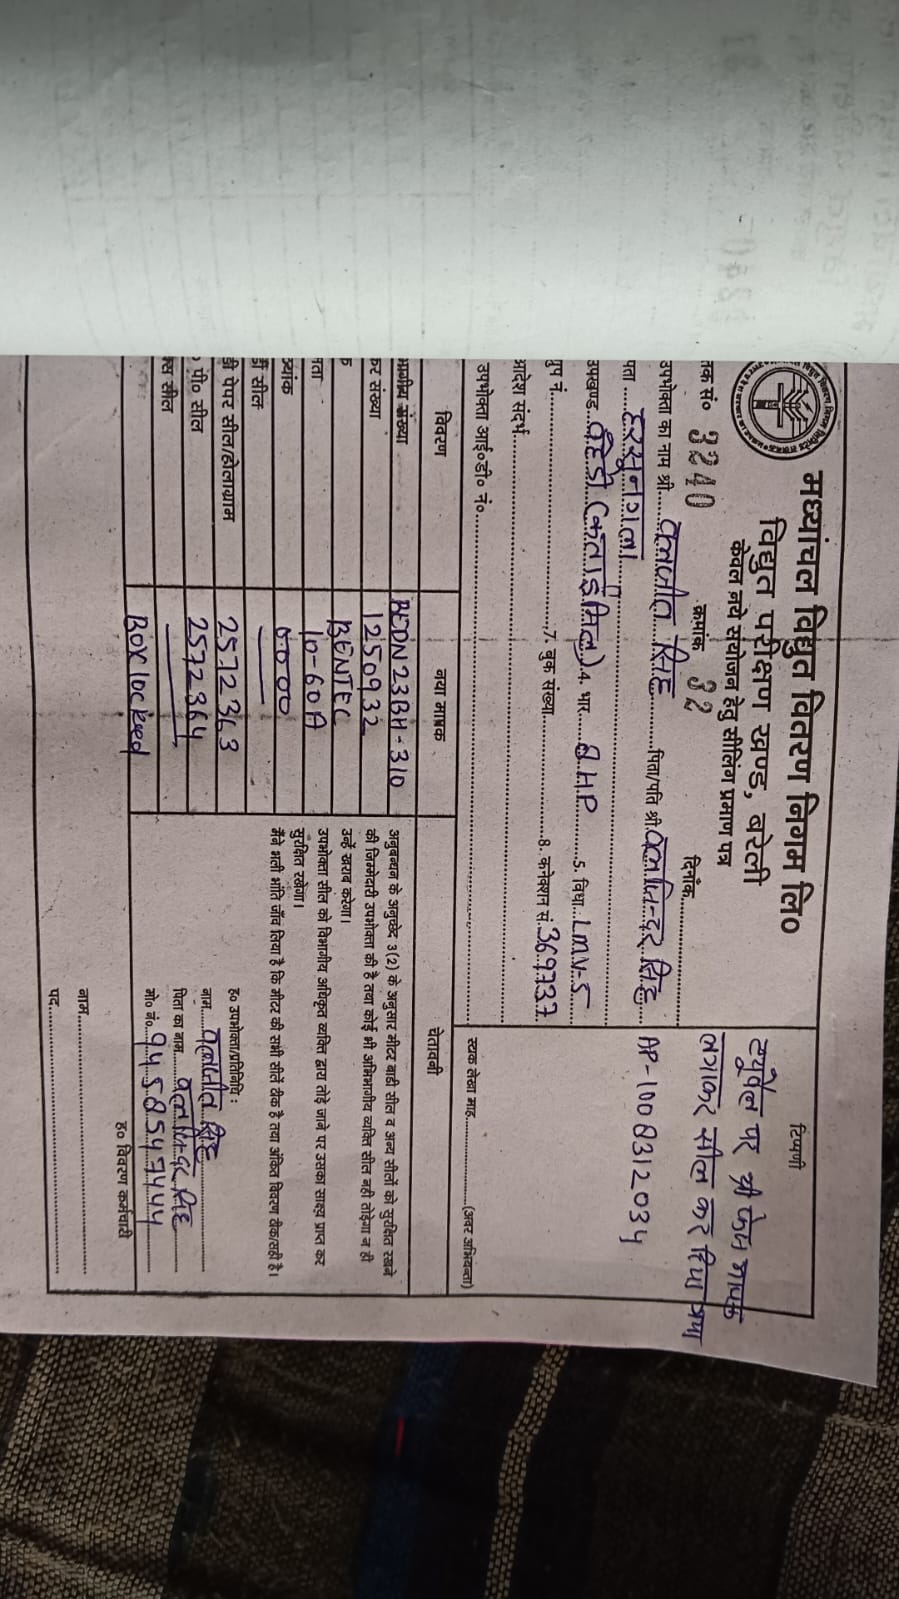 मध्यांचल विद्युत वितरण निगम लि०
विद्युत परीक्षण खण्ड, बरेली
केवल नये संयोजन हेतु सीलिंग प्रमाण पत्र
तक सं० 3240 क्रमांक 32 दिनांक
उपभोक्ता का नाम श्री बलजीत सिंह पिता/पति श्री बलविन्दर सिंह
पता हरसुनगला
उपखण्ड (कताई मिल) 4. भार 8 HP 5. विधा LMV-5
ग्रुप नं. 7. बुक संख्या 8. कनेक्शन सं. 369737
आदेश संदर्भ
उपभोक्ता आई०डी० नं०
टिप्पणी
ट्यूबेल पर थ्री फेस मापक
लगाकर सील कर दिया गया
AP-1008312034
स्टाक लेखा माह (अवर अभियन्ता)
विवरण नया मापक चेतावनी
भागीय संख्या BEDN23BH-310
टर संख्या 1250932
क BENTEC
मता 10-60A
ठ्यांक 0-000
डी सील —
डी पेपर सील/होलोग्राम 2572363
० पी० सील 2572364
क्स सील —
Box locked
अनुबन्धन के अनुच्छेद 3(2) के अनुसार मीटर बाडी सील व अन्य सीलों को सुरक्षित रखने
की जिम्मेदारी उपभोक्ता की है तथा कोई भी अभिभागीय व्यक्ति सील नही तोड़ेगा न ही
उन्हें खराब करेगा।
उपभोक्ता सील को विभागीय अधिकृत व्यक्ति द्वारा तोड़े जाने पर उसका साक्ष्य प्राप्त कर
सुरक्षित रखेगा।
मैंने भली भांति जाँच लिया है कि मीटर की सभी सीलें ठीक है तथा अंकित विवरण ठीक/सही है।
ह० उपभोक्ता/प्रतिनिधि :
नाम बलजीत सिंह
पिता का नाम बलविन्दर सिंह
मो० नं० 9458547444
ह० विवरण कर्मचारी
नाम
पद